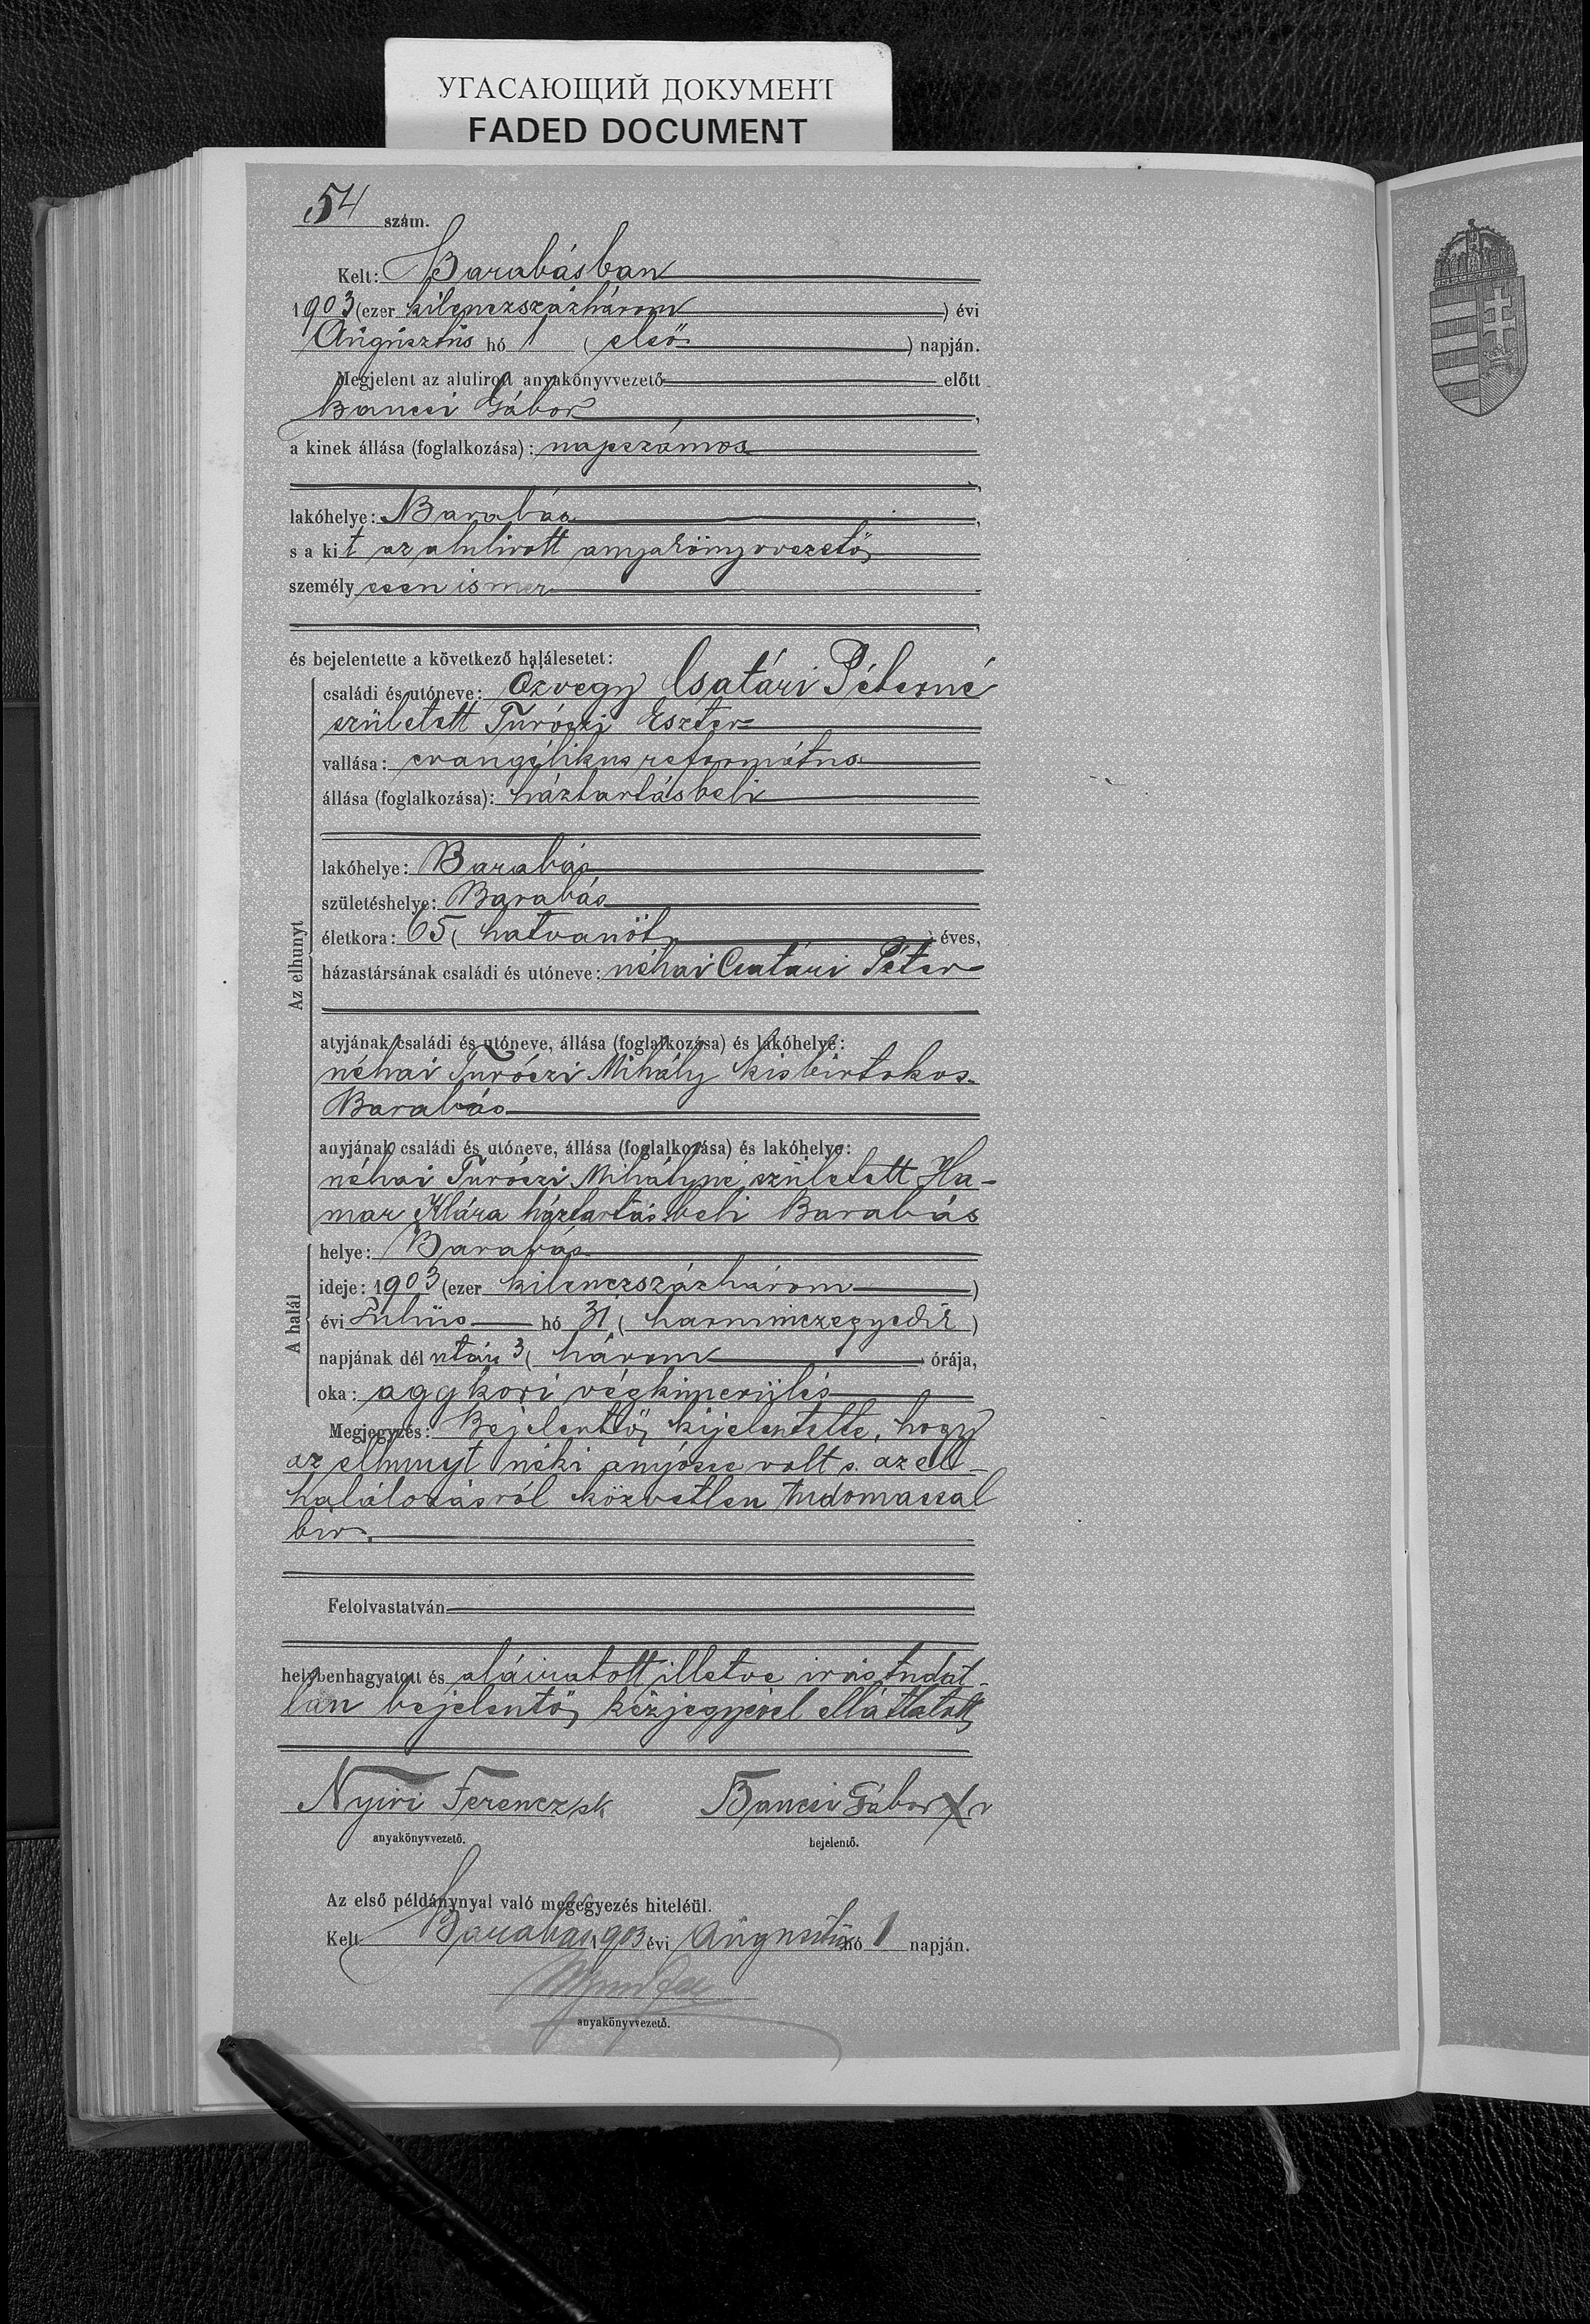 УГАСАЮЩИЙ ДОКУМЕНТ
FADED DOCUMENT
54 szám.
Kelt: Barabásban
1903 (ezer kilenczszázhárom) évi
Augusztus hó 1 (első) napján.
Megjelent az alulirott anyakönyvvezető előtt
Bancsi Gábor,
a kinek állása (foglalkozása): napszámos
lakóhelye: Barabás,
s a kit az alulirott anyakönyvvezető
személyesen ismer
és bejelentette a következő halálesetet:
Az elhunyt
családi és utóneve: Özvegy Csatári Péterné
született Turóczi Eszter
vallása: evangélikus református
állása (foglalkozása): háztartásbeli
lakóhelye: Barabás
születéshelye: Barabás
életkora: 65 (hatvanöt) éves,
házastársának családi és utóneve: néhai Csatári Péter
atyjának családi és utóneve, állása (foglalkozása) és lakóhelye:
néhai Turóczi Mihály kisbirtokos
Barabás
anyjának családi és utóneve, állása (foglalkozása) és lakóhelye:
néhai Turóczi Mihályné született Ha-
mar Klára háztartásbeli Barabás
A halál
helye: Barabás
ideje: 1903 (ezer kilenczszázhárom)
évi Julius hó 31 (harminczegyedik)
napjának dél után 3 (három) órája,
oka: aggkori végkimerülés
Megjegyzés: Bejelentő kijelentette, hogy
az elhunyt néki anyósse volt s. az el-
halálozásról közvetlen tudomással
bir.
Felolvastatván
helybenhagyatott és aláiratott illetve irástudat-
lan bejelentő kézjegyével elláttatott
Nyiri Ferencz sk Bancsi Gábor X v
anyakönyvvezető. bejelentő.
Az első példánynyal való megegyezés hiteléül.
Kelt Barabás 1903 évi Augusztus hó 1 napján.
anyakönyvvezető.